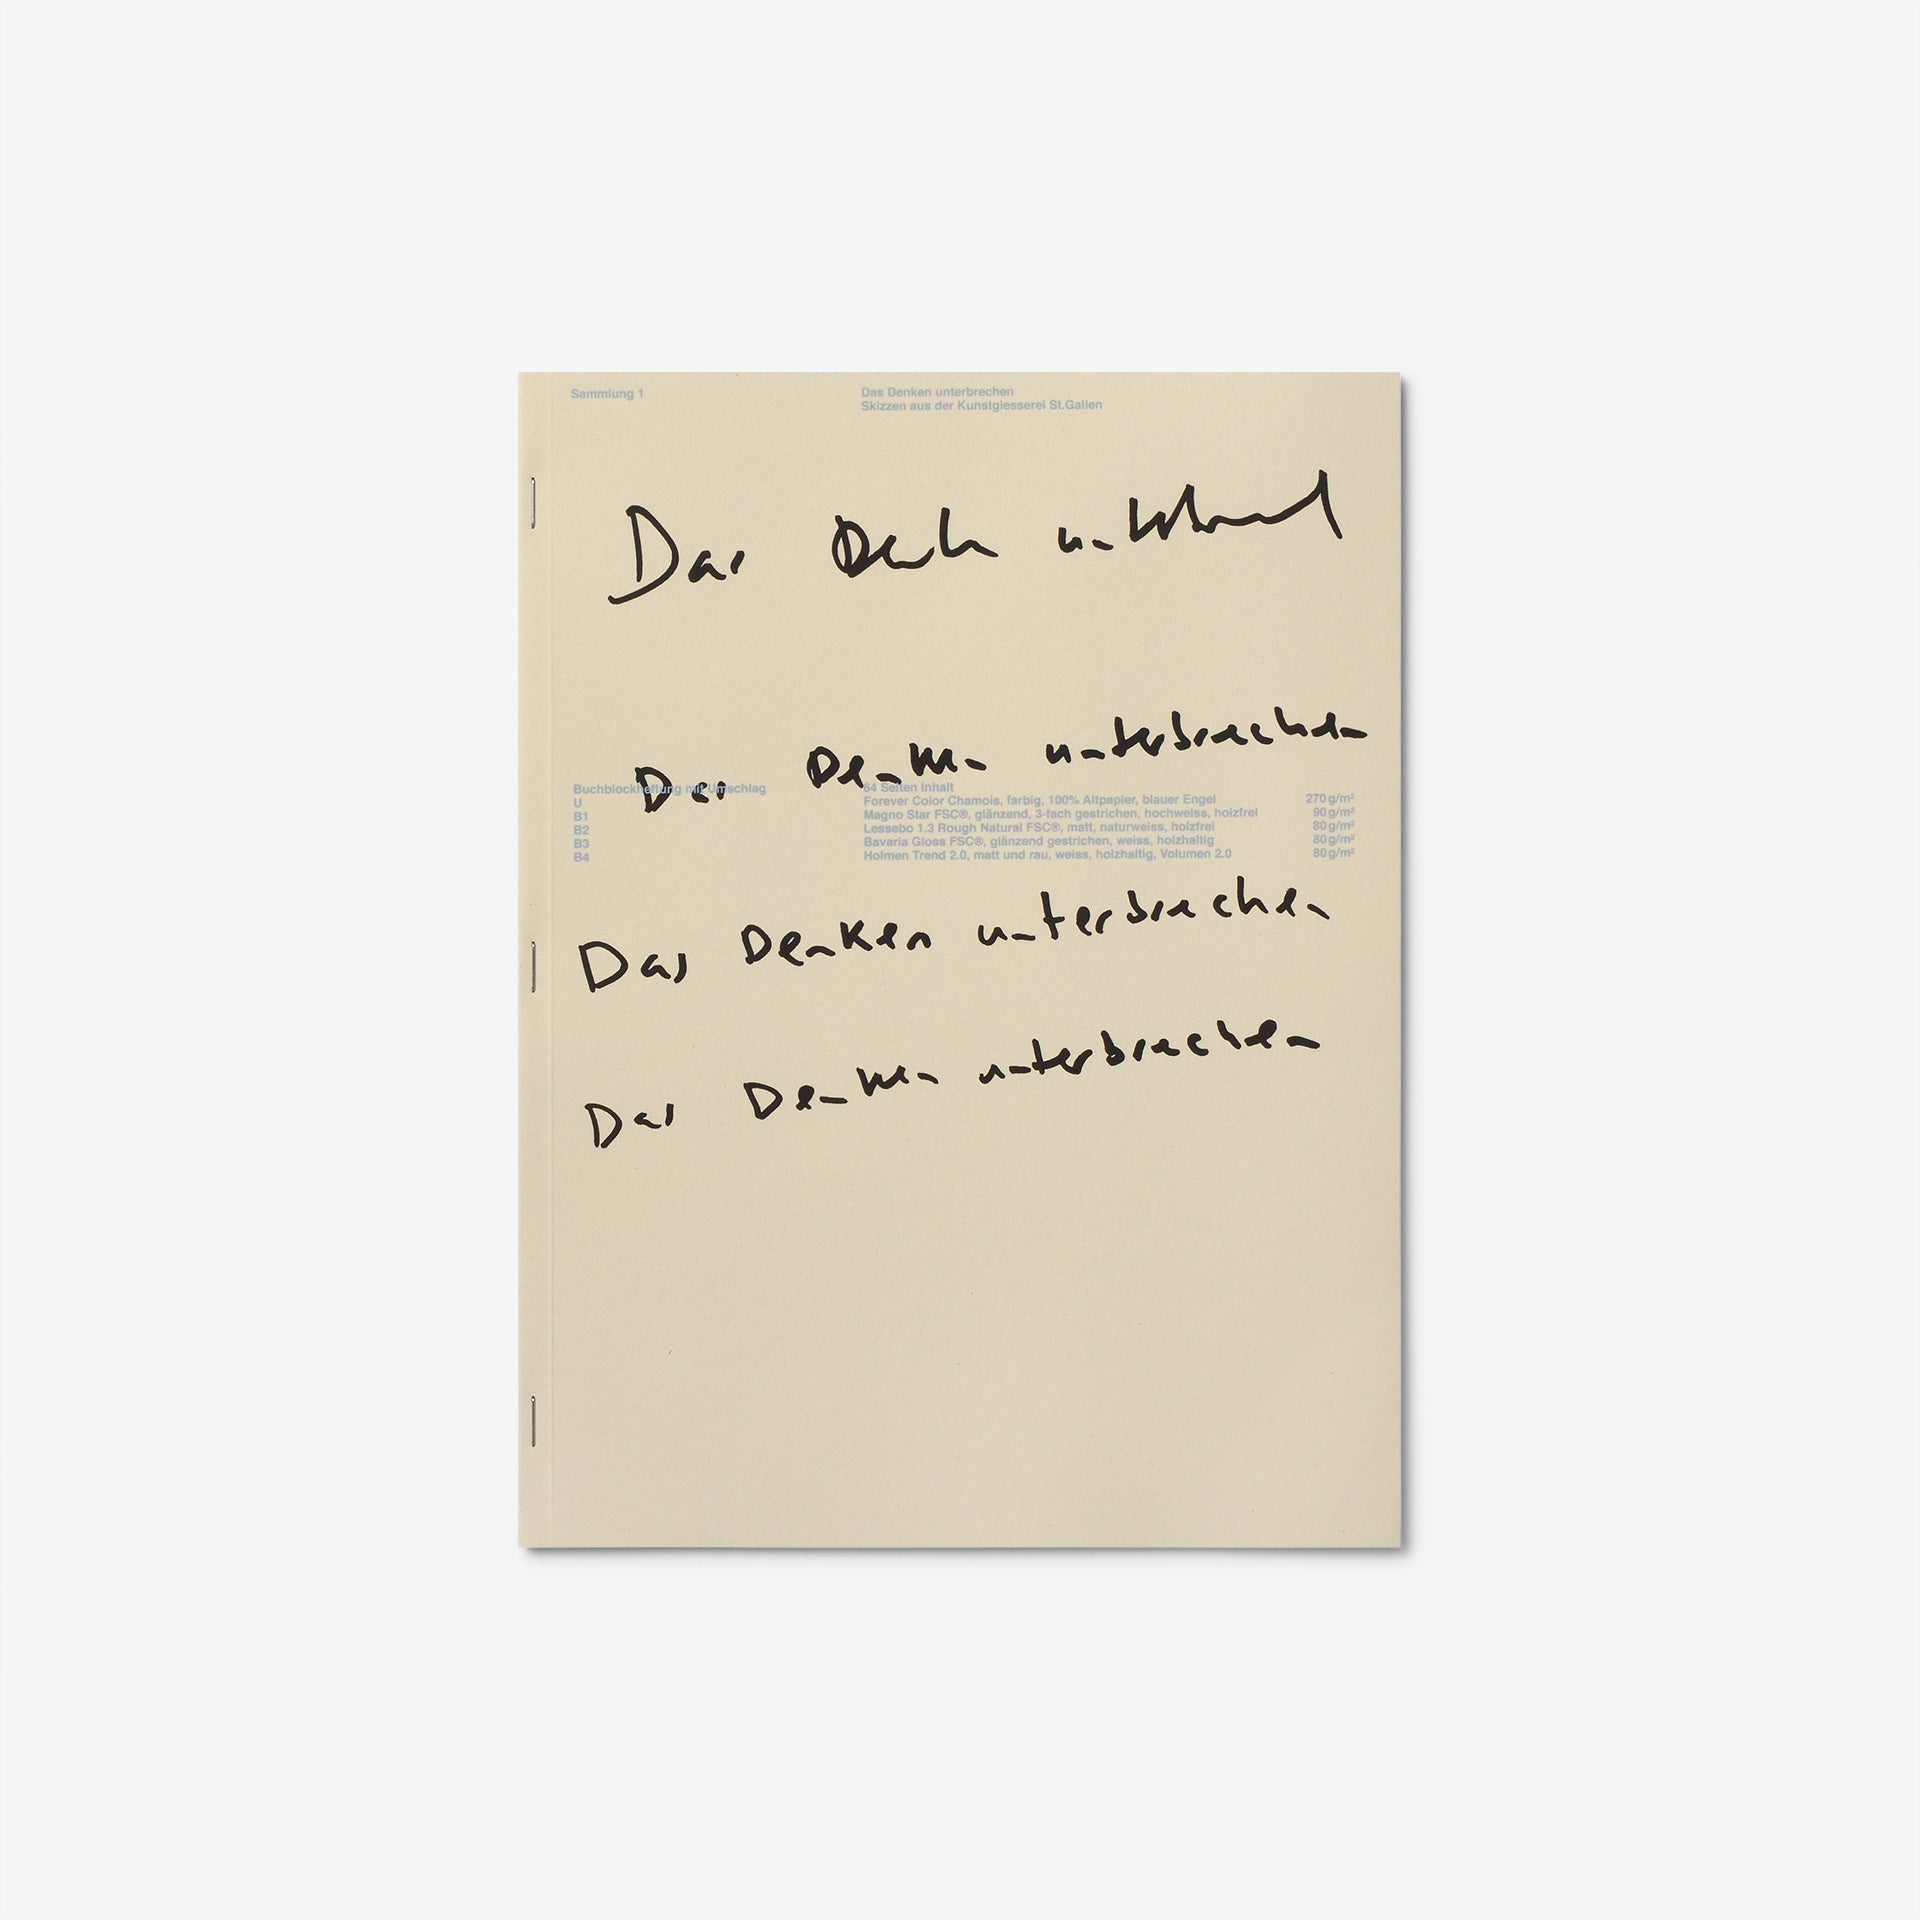 Sammlung 1
Das Denken unterbrechen
Skizzen aus der Kunstgiesserei St.Gallen
Das Denken
Das Denken unterbrechen
Buchblockheftung mit Umschlag 64 Seiten Inhalt
U Forever Color Chamois, farbig, 100% Altpapier, blauer Engel 270 g/m²
B1 Magno Star FSC®, glänzend, 3-fach gestrichen, hochweiss, holzfrei 90 g/m²
B2 Lessebo 1.3 Rough Natural FSC®, matt, naturweiss, holzfrei 80 g/m²
B3 Bavaria Gloss FSC®, glänzend gestrichen, weiss, holzhaltig 80 g/m²
B4 Holmen Trend 2.0, matt und rau, weiss, holzhaltig, Volumen 2.0 80 g/m²
Das Denken unterbrechen
Das Denken unterbrechen